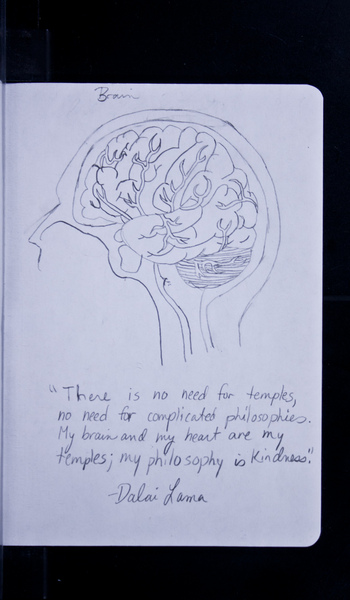 Brain
"There is no need for temples,
no need for complicated philosophies.
My brain and my heart are my
temples; my philosophy is Kindness."
-Dalai Lama